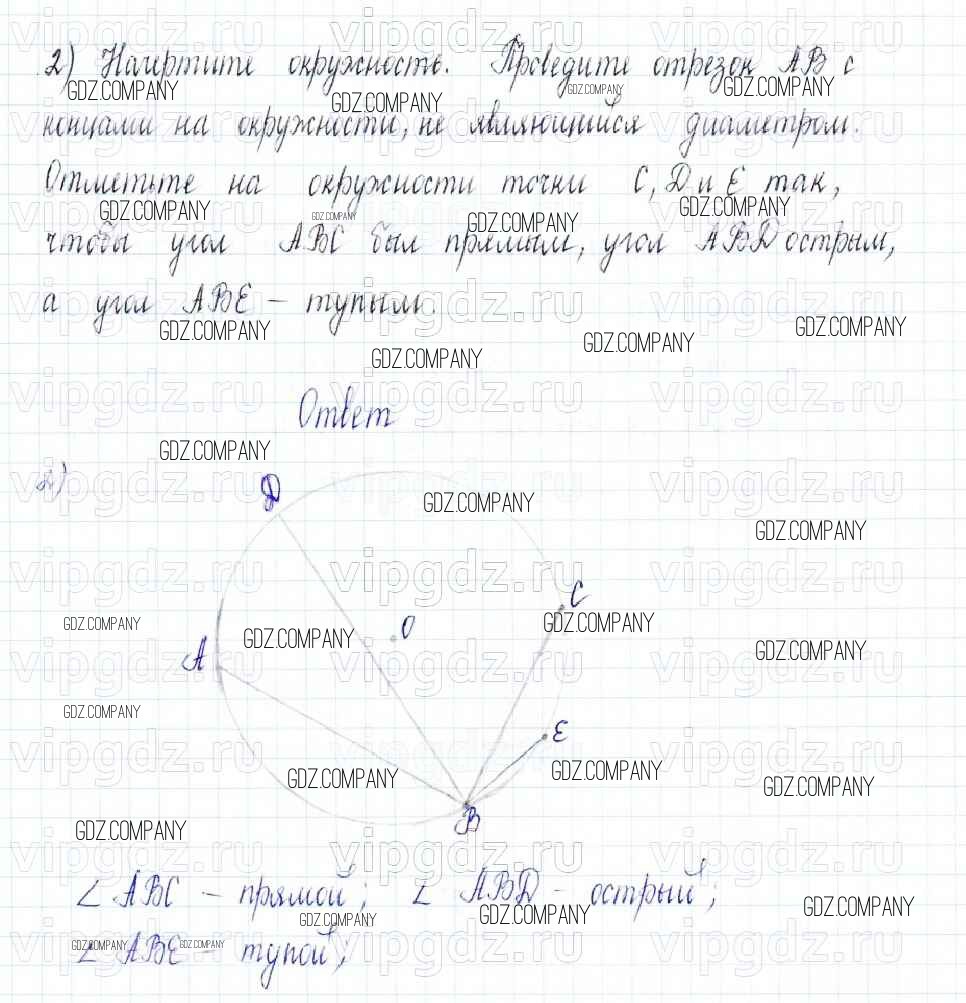 2) Начертите окружность. Проведите отрезок AB с
концами на окружности, не являющийся диаметром.
Отметьте на окружности точки C, D и E так,
чтобы угол ABC был прямым, угол ABD острым,
а угол ABE – тупым.
Ответ
2)
D
C
O
A
E
B
∠ ABC – прямой; ∠ ABD – острый;
∠ ABE – тупой;
vipgdz.ru
GDZ.COMPANY